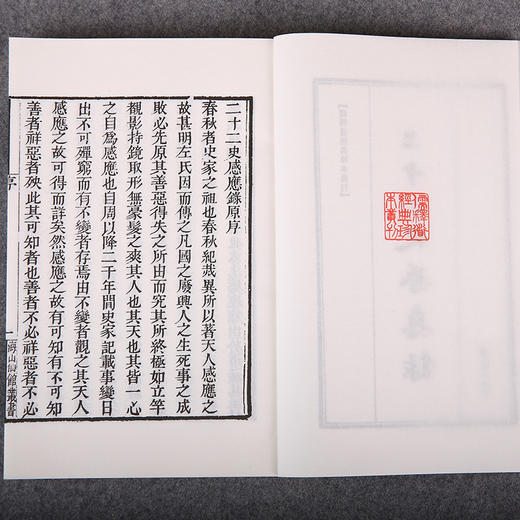 二十二史感應錄原序
春秋者史家之祖也春秋紀烖異所以著天人感應之
故甚明左氏因而傳之凡國之廢興人之生死事之成
敗必先原其善惡得失之所由而究其所終極如立竿
覩影持鏡取形無豪髮之爽其人也其天也其皆一心
之自為感應也自周以降二千年間史家記載事變日
出不可殫窮而有不可變者存焉由不變者觀之其天人
感應之故可得而詳矣然感應之故有可知有不可知
善者祥惡者殃此其可知者也善者不必祥惡者不必
序
一
海山仙館叢書
儒釋道
經典珍
本彙刊